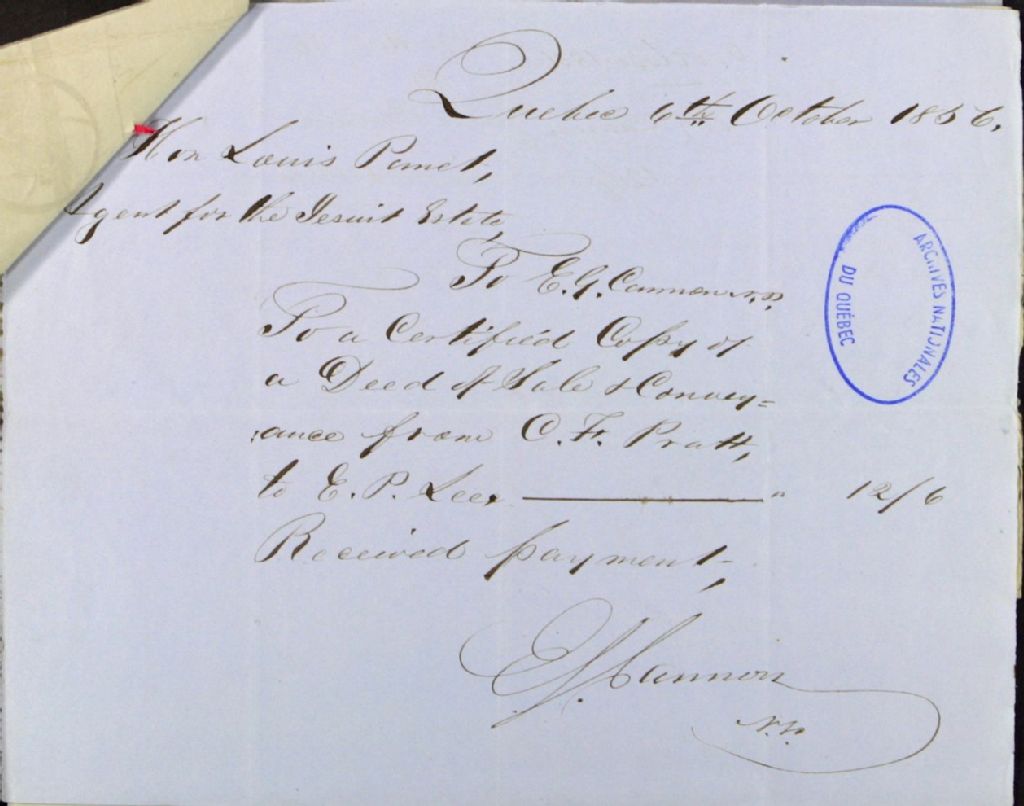 Quebec 6th October 1856.
Hon Louis Panet,
Agent for the Jesuit Estate,
To E. G. Cannon N.P.
To a Certified Copy of
a Deed of Sale & Convey=
ance from C. F. Pratt,
to E. P. Lee, " 12/6
Received payment,
E G Cannon
N.P.
ARCHIVES NATIONALES
DU QUÉBEC